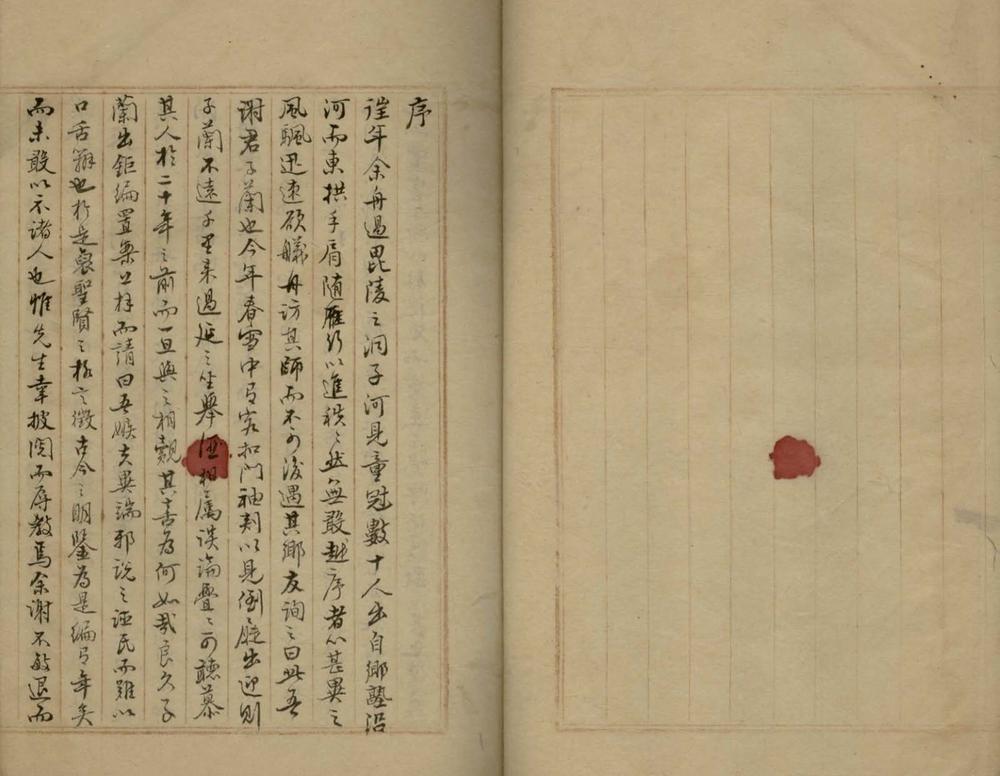 序
往年余舟過毘陵之洞子河見童冠數十人出自鄉塾沿
河而東拱手肩隨雁行以進秩〻然無敢越序者心甚異之
風颿迅速欲艤舟訪其師而不可後遇其鄉友詢之曰此吾
謝君子蘭也今年春雪中有客扣門袖刺以見倒屣出迎則
子蘭不遠千里來過延之坐舉酒相屬談論亹〻可聽慕
其人於二十年之前而一旦與之相覿其喜為何如哉良久子
蘭出鉅編置案上拜而請曰吾嫉夫異端邪說之誣民而難以
口舌辯也於是裒聖賢之格言徵古今之明鑒為是編有年矣
而未敢以示諸人也惟先生幸披閱而辱教焉余謝不敏退而